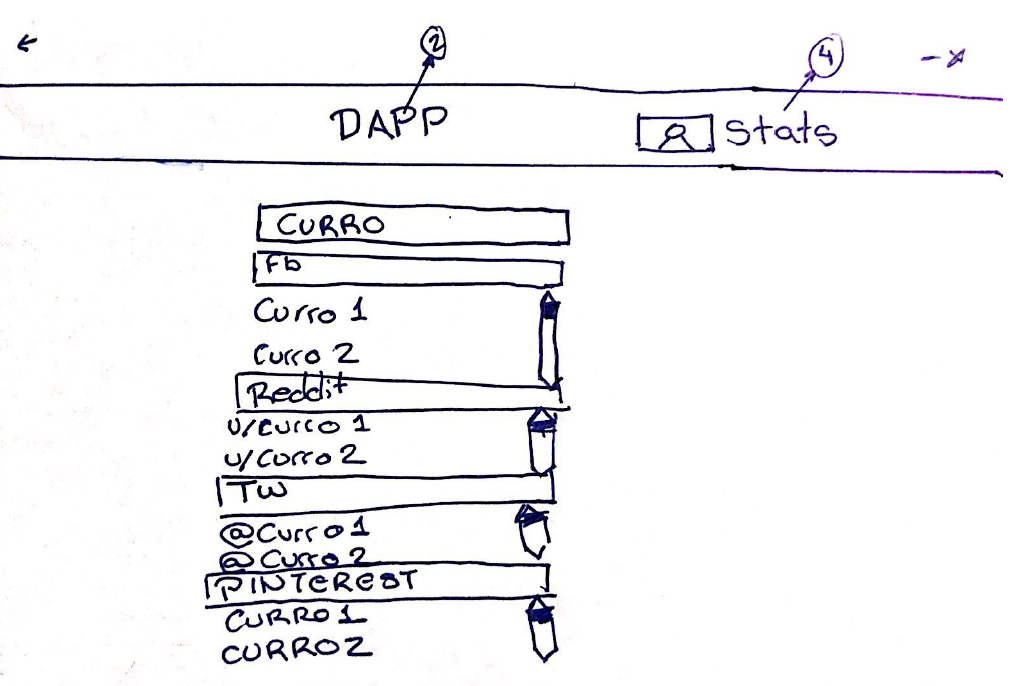 2
4
DAPP Stats
CURRO
Fb
Curro 1
Curro 2
Reddit
u/curro 1
u/Curro 2
TW
@Curro1
@Curro 2
PINTEREST
CURRO1
CURRO2